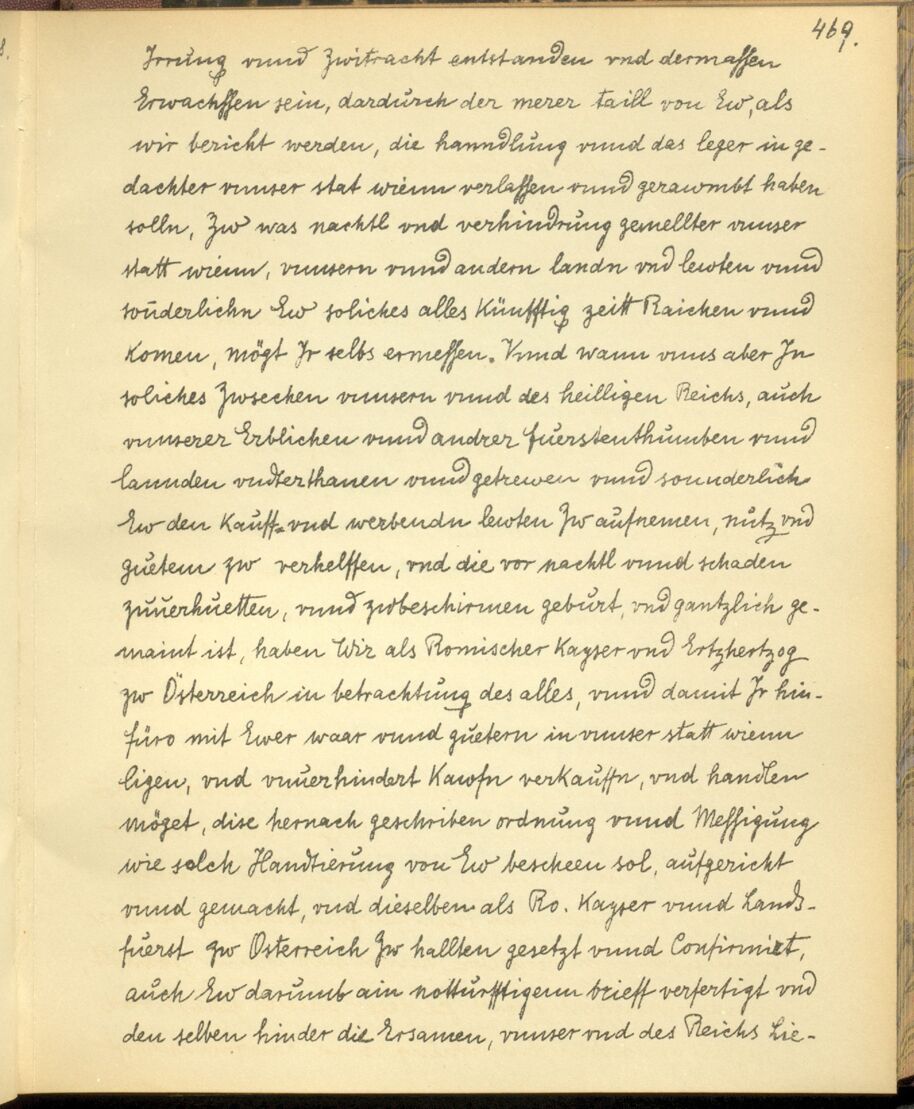 469.
Irrung vnnd Zwitracht entstanden vnd dermassen
Erwachssen sein, dardurch der merer taill von Ew, als
wir bericht werden, die hanndlung vnnd das leger in ge-
dachter vnnser stat wienn verlassen vnnd gerawmbt haben
solln, Zw was nachtl vnd verhindrung gemellter vnnser
statt wienn, vnnsern vnnd andern landn vnd lewten vnnd
sonderlichn Ew soliches alles Künfftig zeitt Raichen vnnd
Komen, mögt Ir selbs ermessen. Vnnd wann vnns aber In
soliches Zwsechen vnnsern vnnd des heilligen Reichs, auch
vnnserer Erblichen vnnd andrer fuerstenthumben vnnd
lannden vndterthanen vnnd getrewen vnnd sonnderlich
Ew den Kauff- vnd werbendn lewten Zw aufnemen, nutz vnd
guetem zw verhelffen, vnd die vor nachtl vnnd schaden
zuuerhuetten, vnnd zwbeschirmen geburt, vnd gantzlich ge-
maint ist, haben Wir als Romischer Kayser vnd Ertzhertzog
zw Österreich in betrachtung des alles, vnnd damit Ir hin-
füro mit Ewer waar vnnd guetern in vnnser statt wienn
ligen, vnd vnuerhindert Kawfn verkauffn, vnd handlen
möget, dise hernach geschriben ordnung vnnd Messigung
wie solch Handtierung von Ew bescheen sol, aufgericht
vnnd gemacht, vnd dieselben als Ro. Kayser vnnd Lands-
fuerst zw Osterreich Zw hallten gesetzt vnnd Confirmirt,
auch Ew darumb ain notturfftigenn brieff verfertigt vnd
den selben hinder die Ersamen, vnnser vnd des Reichs Lie-